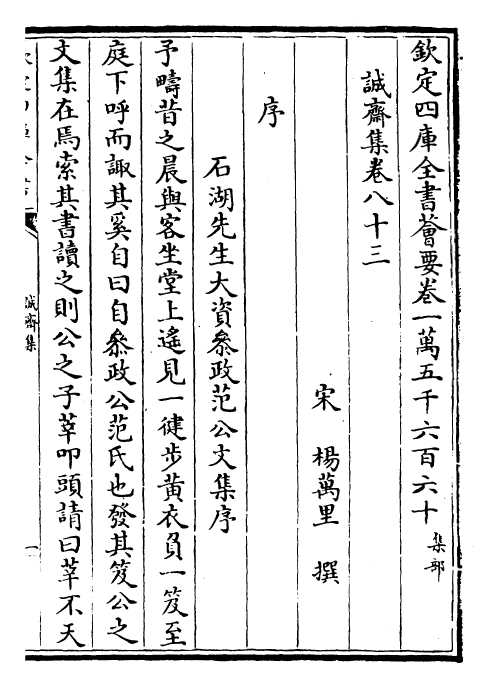 欽定四庫全書薈要卷一萬五千六百六十 集部
誠齋集卷八十三
宋 楊萬里 撰
序
石湖先生大資叅政范公文集序
予疇昔之晨與客坐堂上遙見一健步黃衣負一笈至
庭下呼而諏其奚自曰自叅政公范氏也發其笈公之
文集在焉索其書讀之則公之子莘叩頭請曰莘不天
誠齋集
一